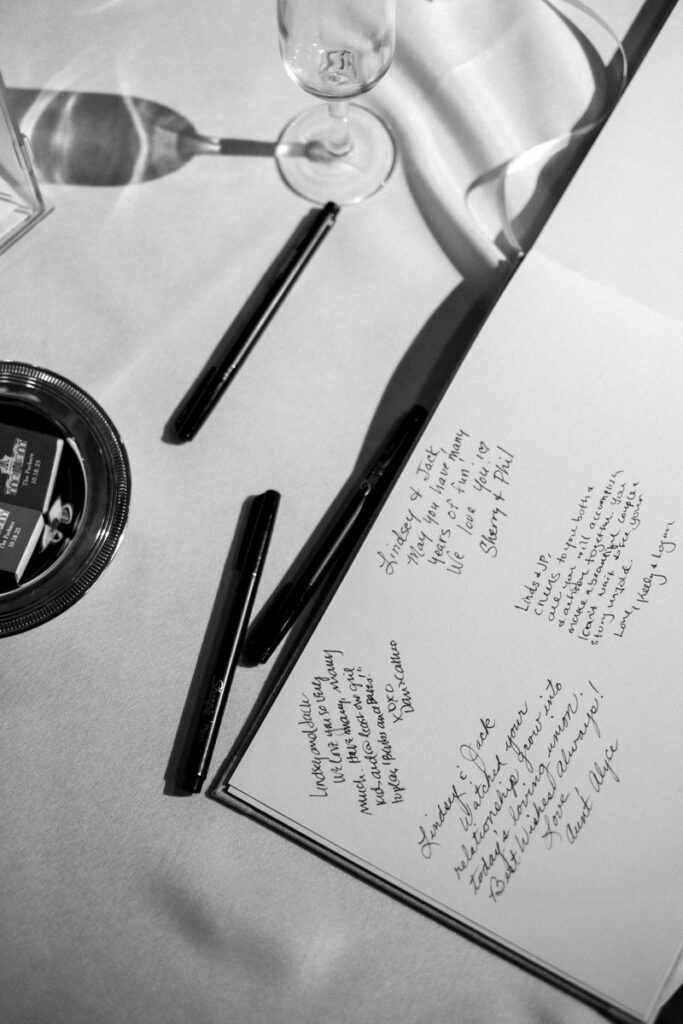 The Parkers
10.18.25
The Parkers
10.18.25
Lindsey & Jack
May you have many
years of fun!
We love you! ♡
Sherry & Phil
Linds & JP,
Cheers to you both &
all you will accomplish
& achieve together. You
make a beautiful couple &
I can't wait to see your
story unfold.
Love, Kelly & Logan
Lindsey and Jack
We love you so very
much. Have many, many
kids and @ least one girl
to play! Barbies and
XOXO
Dan &
Lindsey & Jack
Watched your
relationship grow into
today's loving union.
Best Wishes always!
Love
Aunt Alyce
Sharpie